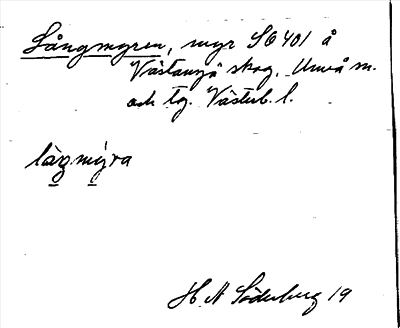 Långmyren, myr SG 401 å
Västangå skog. Umeå sn.
och tg. Västerb. l.
lågmýra
H. A Söderberg 19